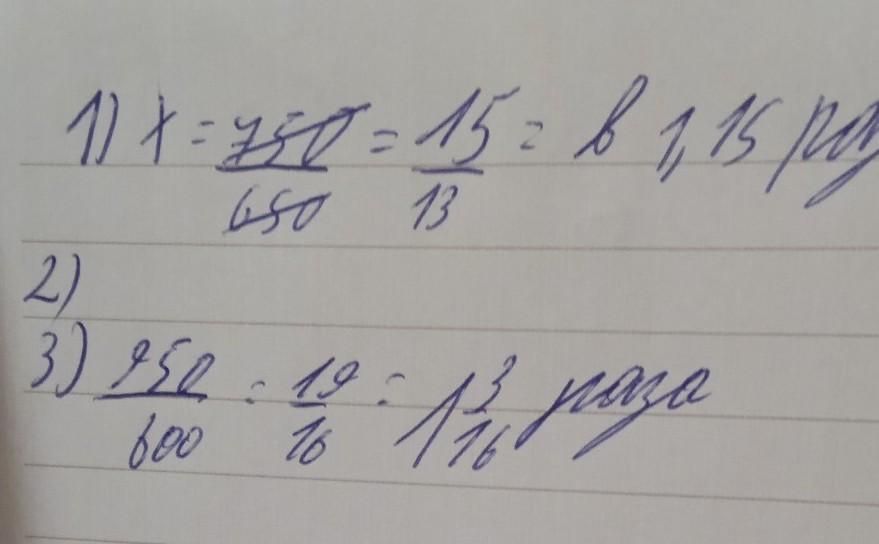 1) x = 750/650 = 15/13 = в 1,15 раз
2)
3) 950/600 = 19/16 = 1 3/16 раза